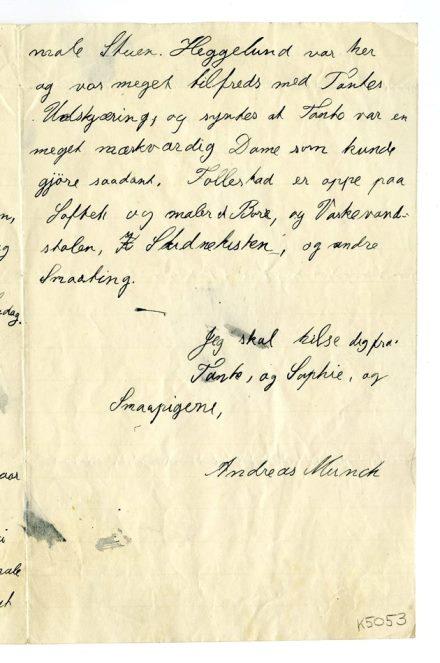 male Stuen. Heggelund var her
og var meget tilfreds med Tantes
Udskjæring, og syntes at Tante var en
meget mærkværdig Dame som kunde
gjöre saadant. Tollestad er oppe paa
Loftet og maler et Bord, og Vaskevand-
stolen, og andre
Smaating.
Jeg skal hilse dig fra
Tante, og Sophie, og
Smaapigene,
Andreas Munch
K5053
dag.
aar